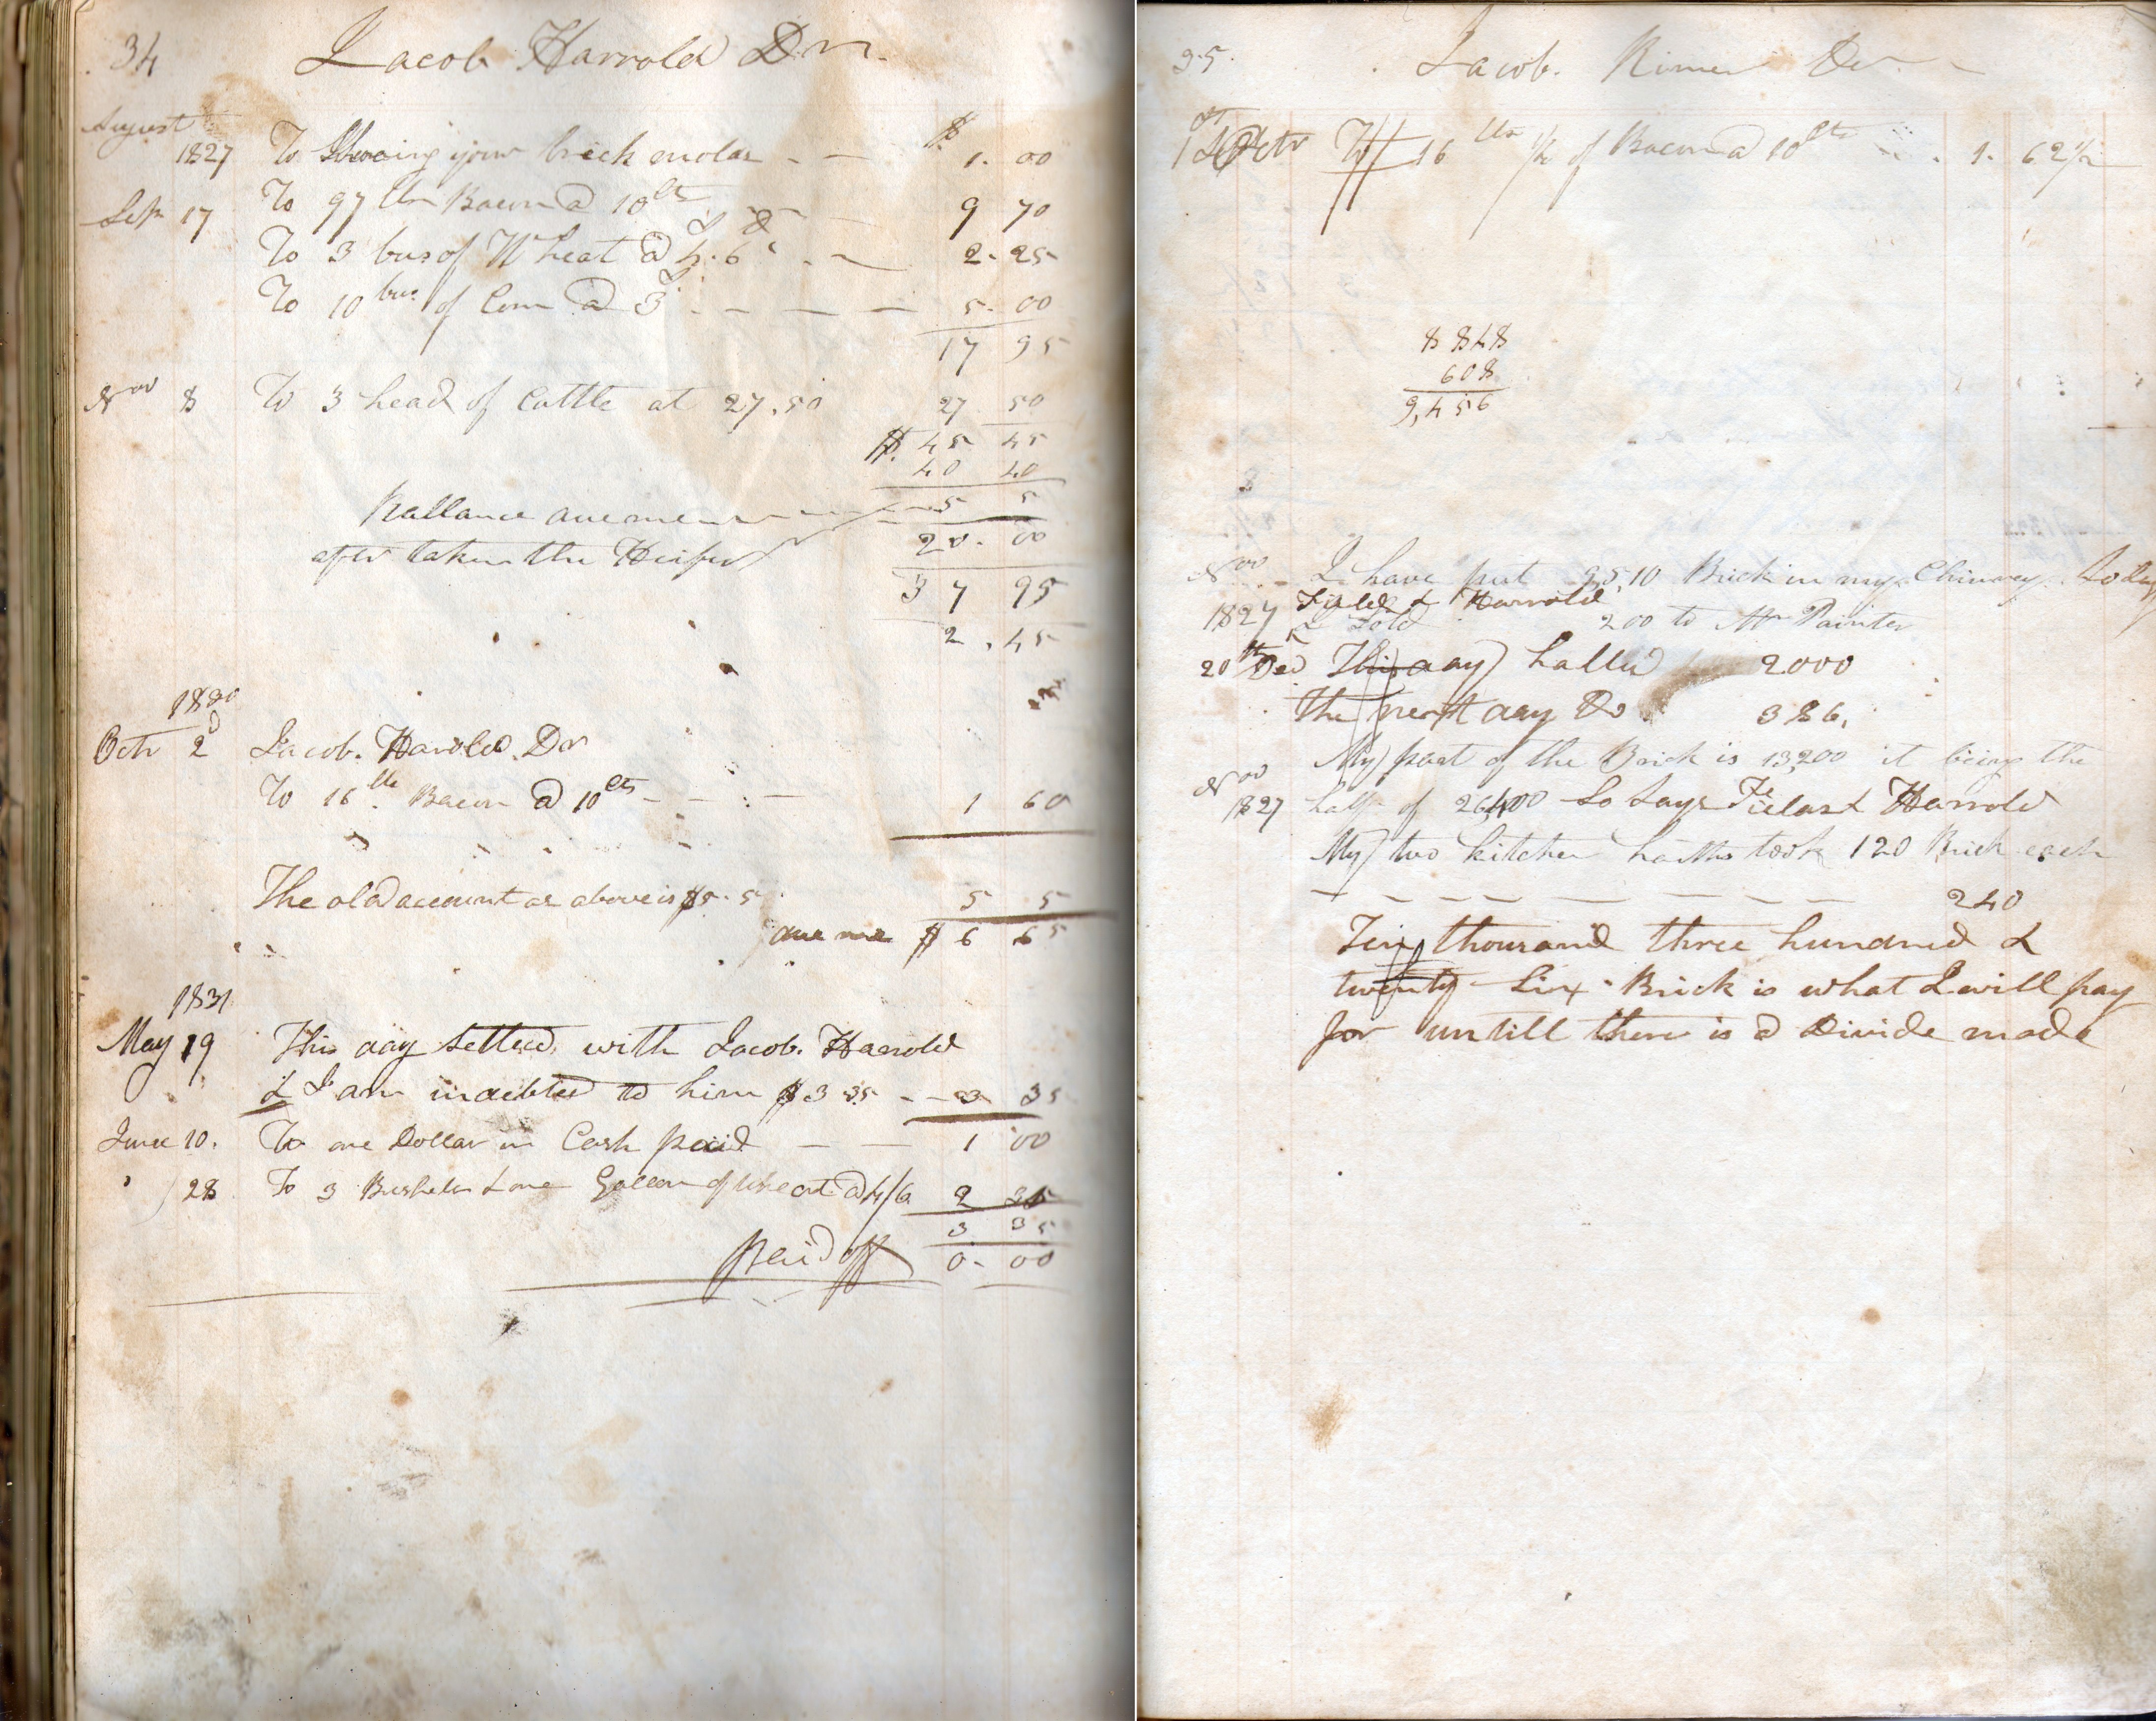 34 Jacob Harrold Dr.
August $
1827 To your brick molds - - 1. 00
Sep 17 To 97 lbs Bacon @ 10 cts - 9 70
To 3 bus of Wheat @ 4. 6 - - 2. 25
To 10 bus. of Corn @ 3 - - - - 5. 00
17 95
Nov 8 To 3 head of Cattle at 27.50 27 50
$. 45 45
40 40
Ballance due me 5 5
after taken the Heifer 20. 00
3 7 95
2. 45
1830
Octr 2d Jacob. Harold Dr
To 16 lb. Bacon @ 10 cts - - - 1 60
The old account as above is $5. 5 5 5
due me $ 6 65
1831
May 19 This day Setteed with Jacob. Harrold
& I am indebted to him $3 35 - - 3 35
June 10. To one Dollar in Cash paid - - 1 00
" 28 To 3 Bushels & one Gallon of Wheat @ 4/6 2 35
3 35
paid off 0. 00
35. Jacob. Rimer Dr
1st Octr To 16 lbs 1/4 of Bacon @ 10 cts . 1. 62 1/2
8 848
608
9,456
Nov I have put 9,510 Brick in my Chimney. today
Harrold
1827 & Sold 200 to Mr Painter
20th Ded This day halled 2000
the next day Do 386.
My part of the Brick is 13,200 it being the
Nov
1827 half of 26,400 So Says Harrold
My two kitchen harths took 120 Brick each
- - - - - - - - 240
Ten thousand three hundred &
twenty Six Brick is what I will pay
for untill there is a Divide made